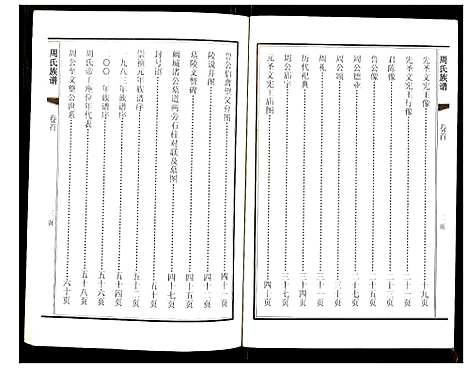 周氏族谱
卷首
先圣文宪王像……十九页
先圣文宪王行像……二十页
君陈像……二十一页
鲁公像……二十五页
周公德业……二十六页
周公颂……三十页
周礼……三十二页
历代祀典……三十七页
周公庙宇……三十七页
元圣文宪王庙图……四十页
鲁公伯禽望父台图……四十一页
陵说并图……四十二页
墓陵文暨碑……四十五页
诸公墓道两旁石柱对联及墓图……四十七页
封号部……五十页
元年族谱序……五十二页
一九八三年族谱序……五十四页
年族谱序……五十六页
周氏帝王座位年代表……五十八页
周公至文暨公世系……六十页
周氏族谱
卷首